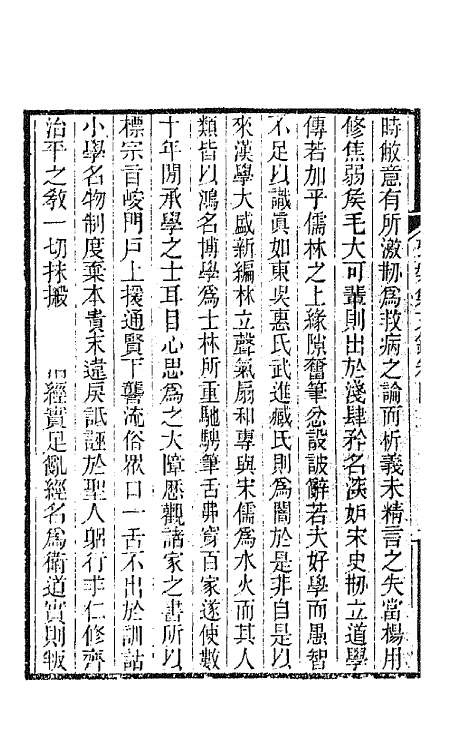 時敝意有所激刱爲救病之論而析義未精言之失當楊用
修焦弱矦毛大可輩則出於淺肆矜名深妒宋史刱立道學
傳若加乎儒林之上緣隙奮筆忿設詖辭若夫好學而愚智
不足以識眞如東吳惠氏武進臧氏則爲闇於是非自是以
來漢學大盛新編林立聲氣扇和專與宋儒爲水火而其人
類皆以鴻名博學爲士林所重馳騁筆舌弗穿百家遂使數
十年閒承學之士耳目心思爲之大障歷觀諸家之書所以
標宗旨峻門戶上援通賢下讋流俗眾口一舌不出於訓詁
小學名物制度棄本貴末違戾詆誣於聖人躬行求仁修齊
治平之敎一切抹摋 經實足亂經名爲衛道實則畔